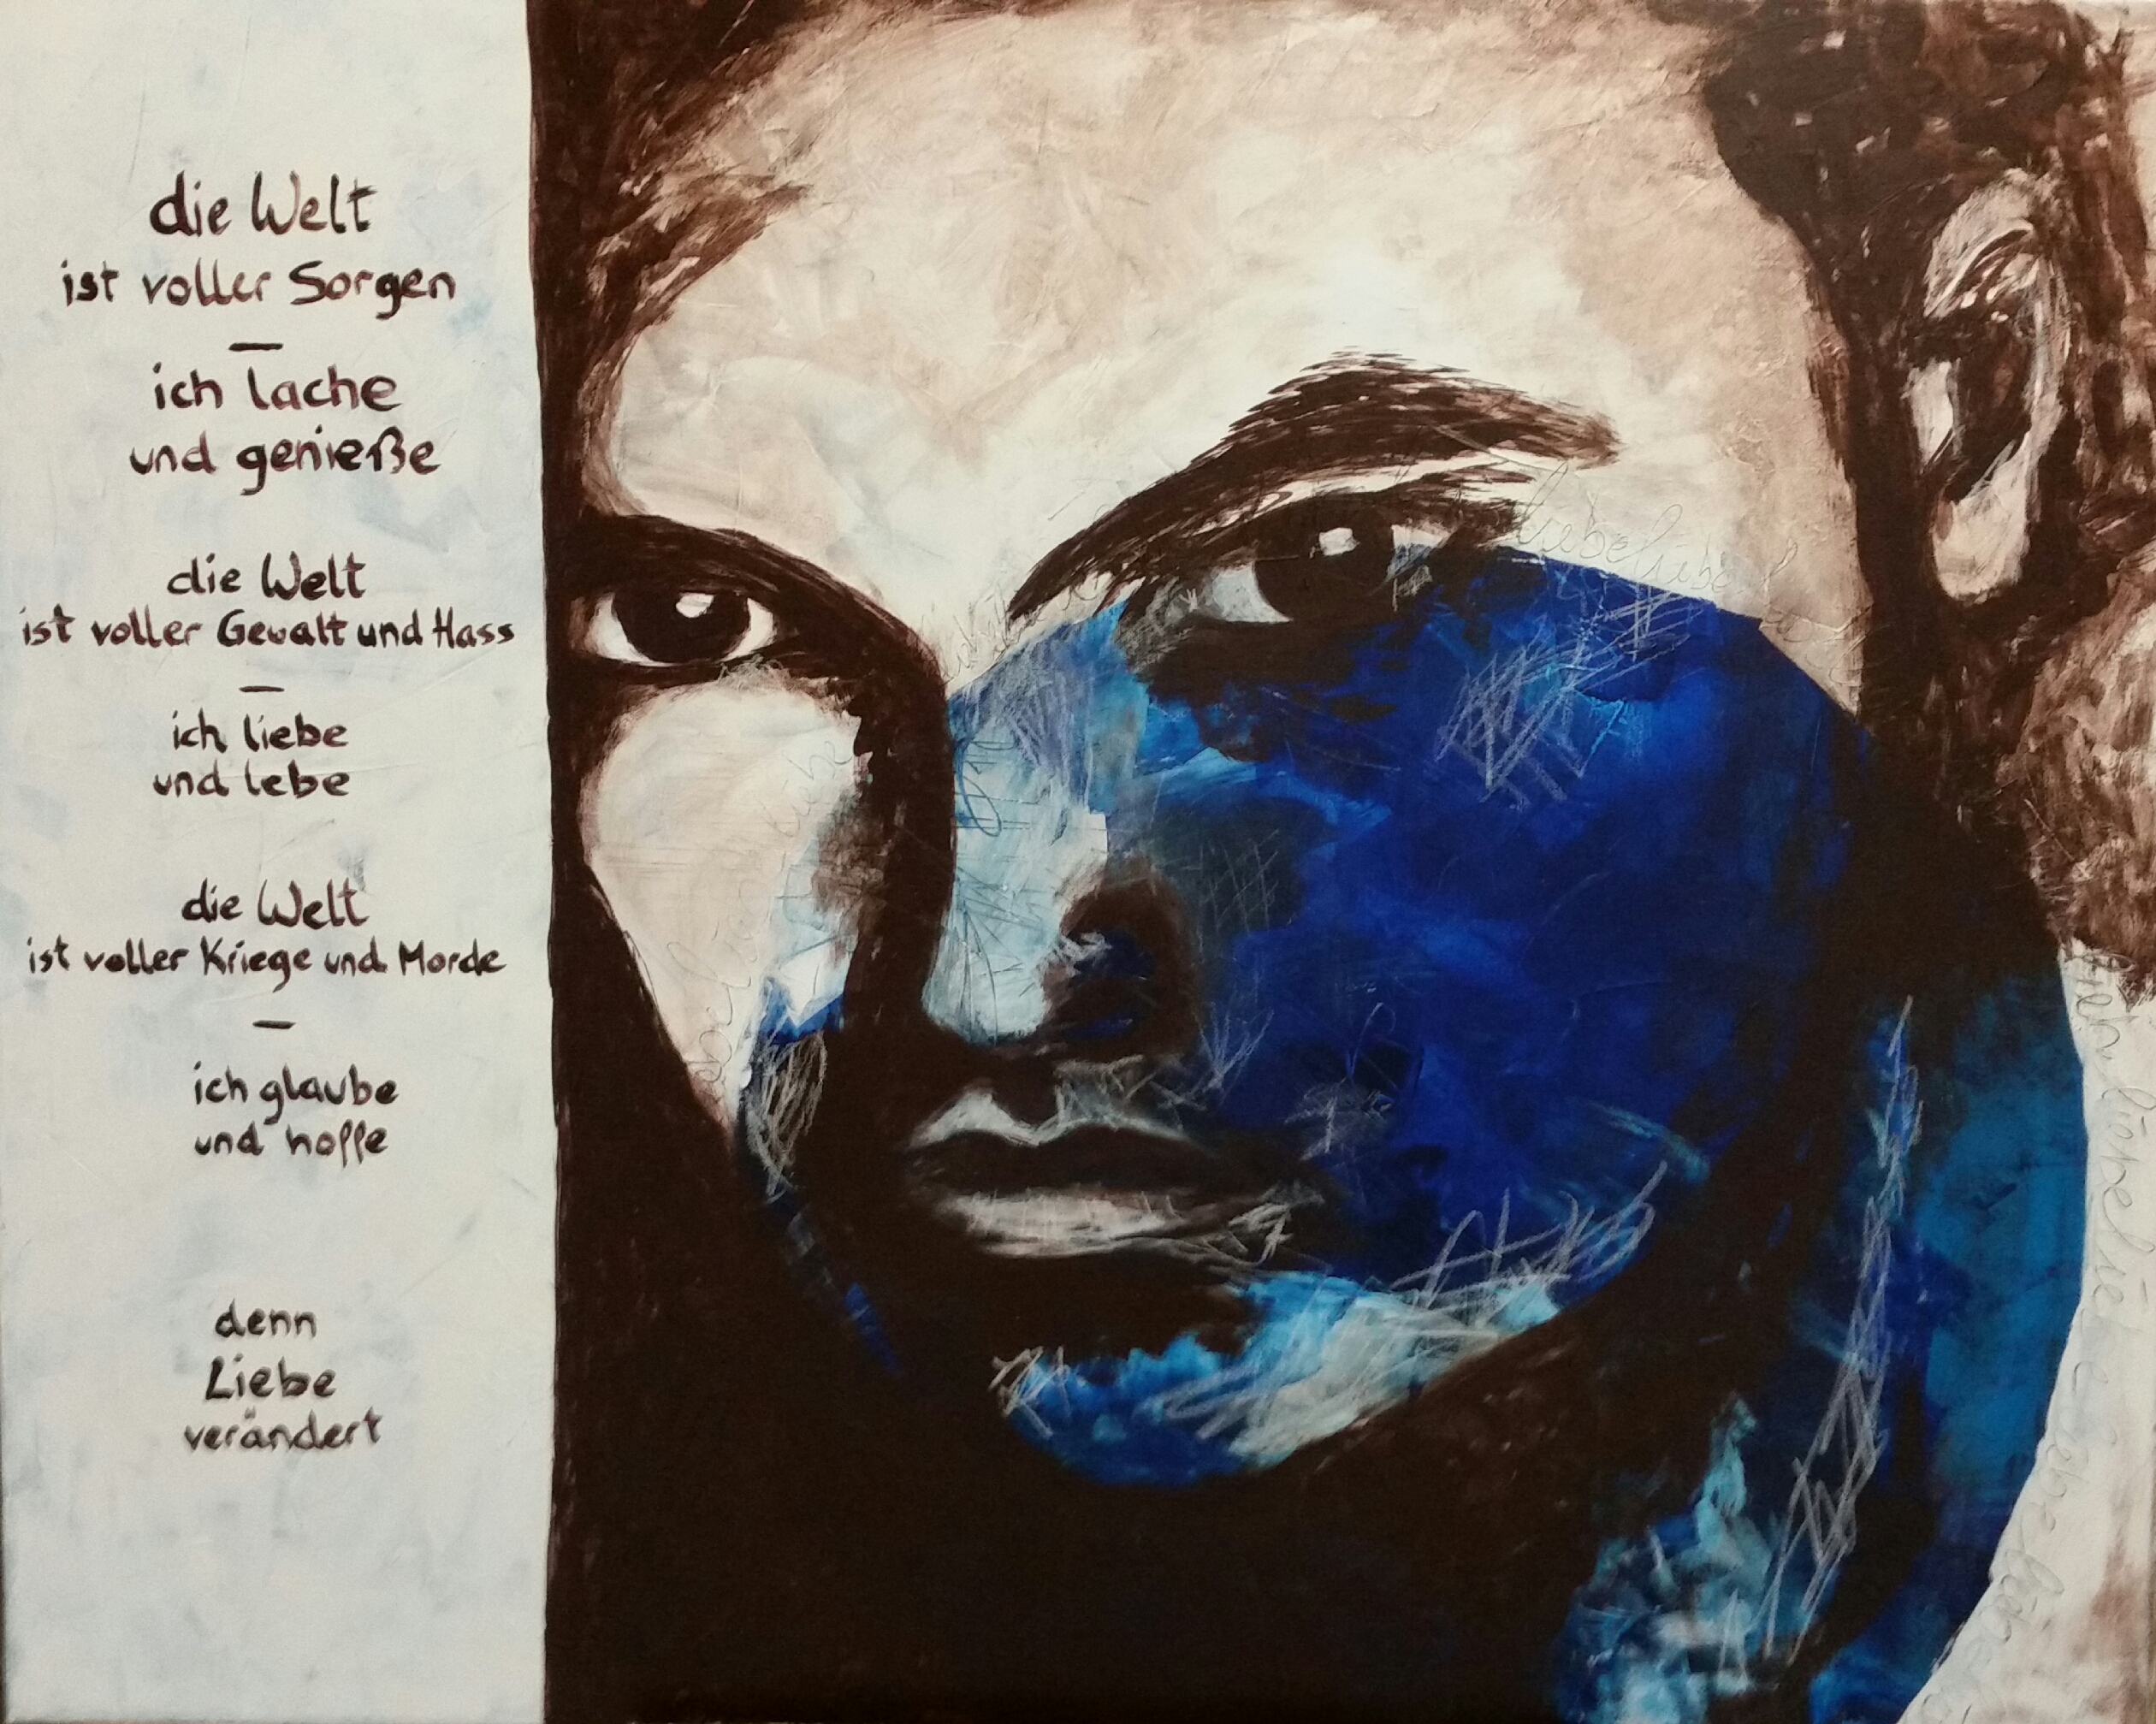 die Welt
ist voller Sorgen
–
ich lache
und genieße
die Welt
ist voller Gewalt und Hass
–
ich liebe
und lebe
die Welt
ist voller Kriege und Morde
–
ich glaube
und hoffe
denn
Liebe
verändert
liebeliebe